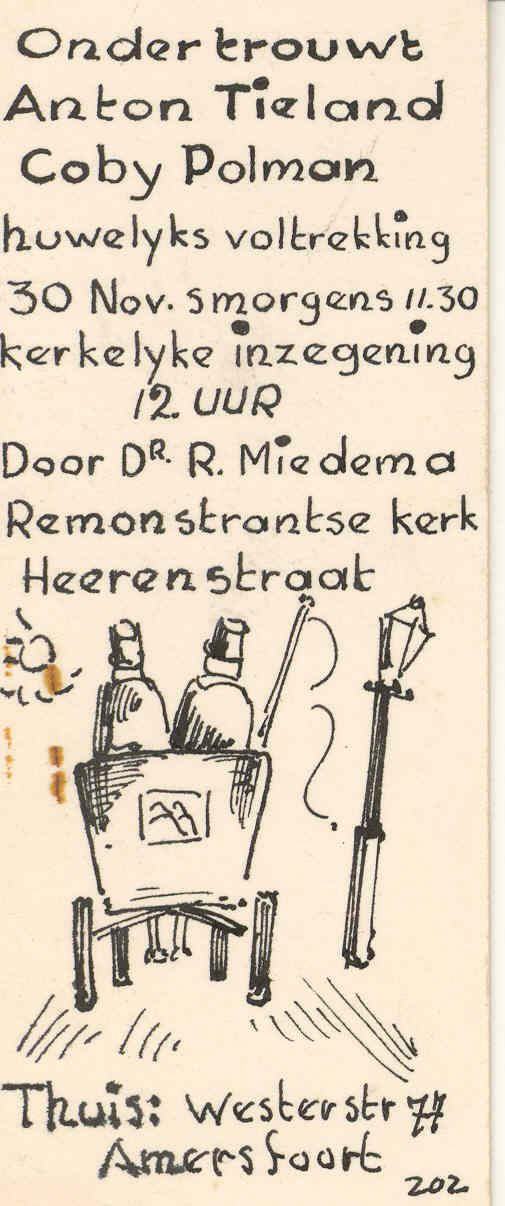 Ondertrouwt
Anton Tieland
Coby Polman
huwelyks voltrekking
30 Nov. smorgens 11.30
kerkelyke inzegening
12. UUR
Door DR. R. Miedema
Remonstrantse kerk
Heerenstraat
Thuis: Westerstr 77
Amersfoort
202